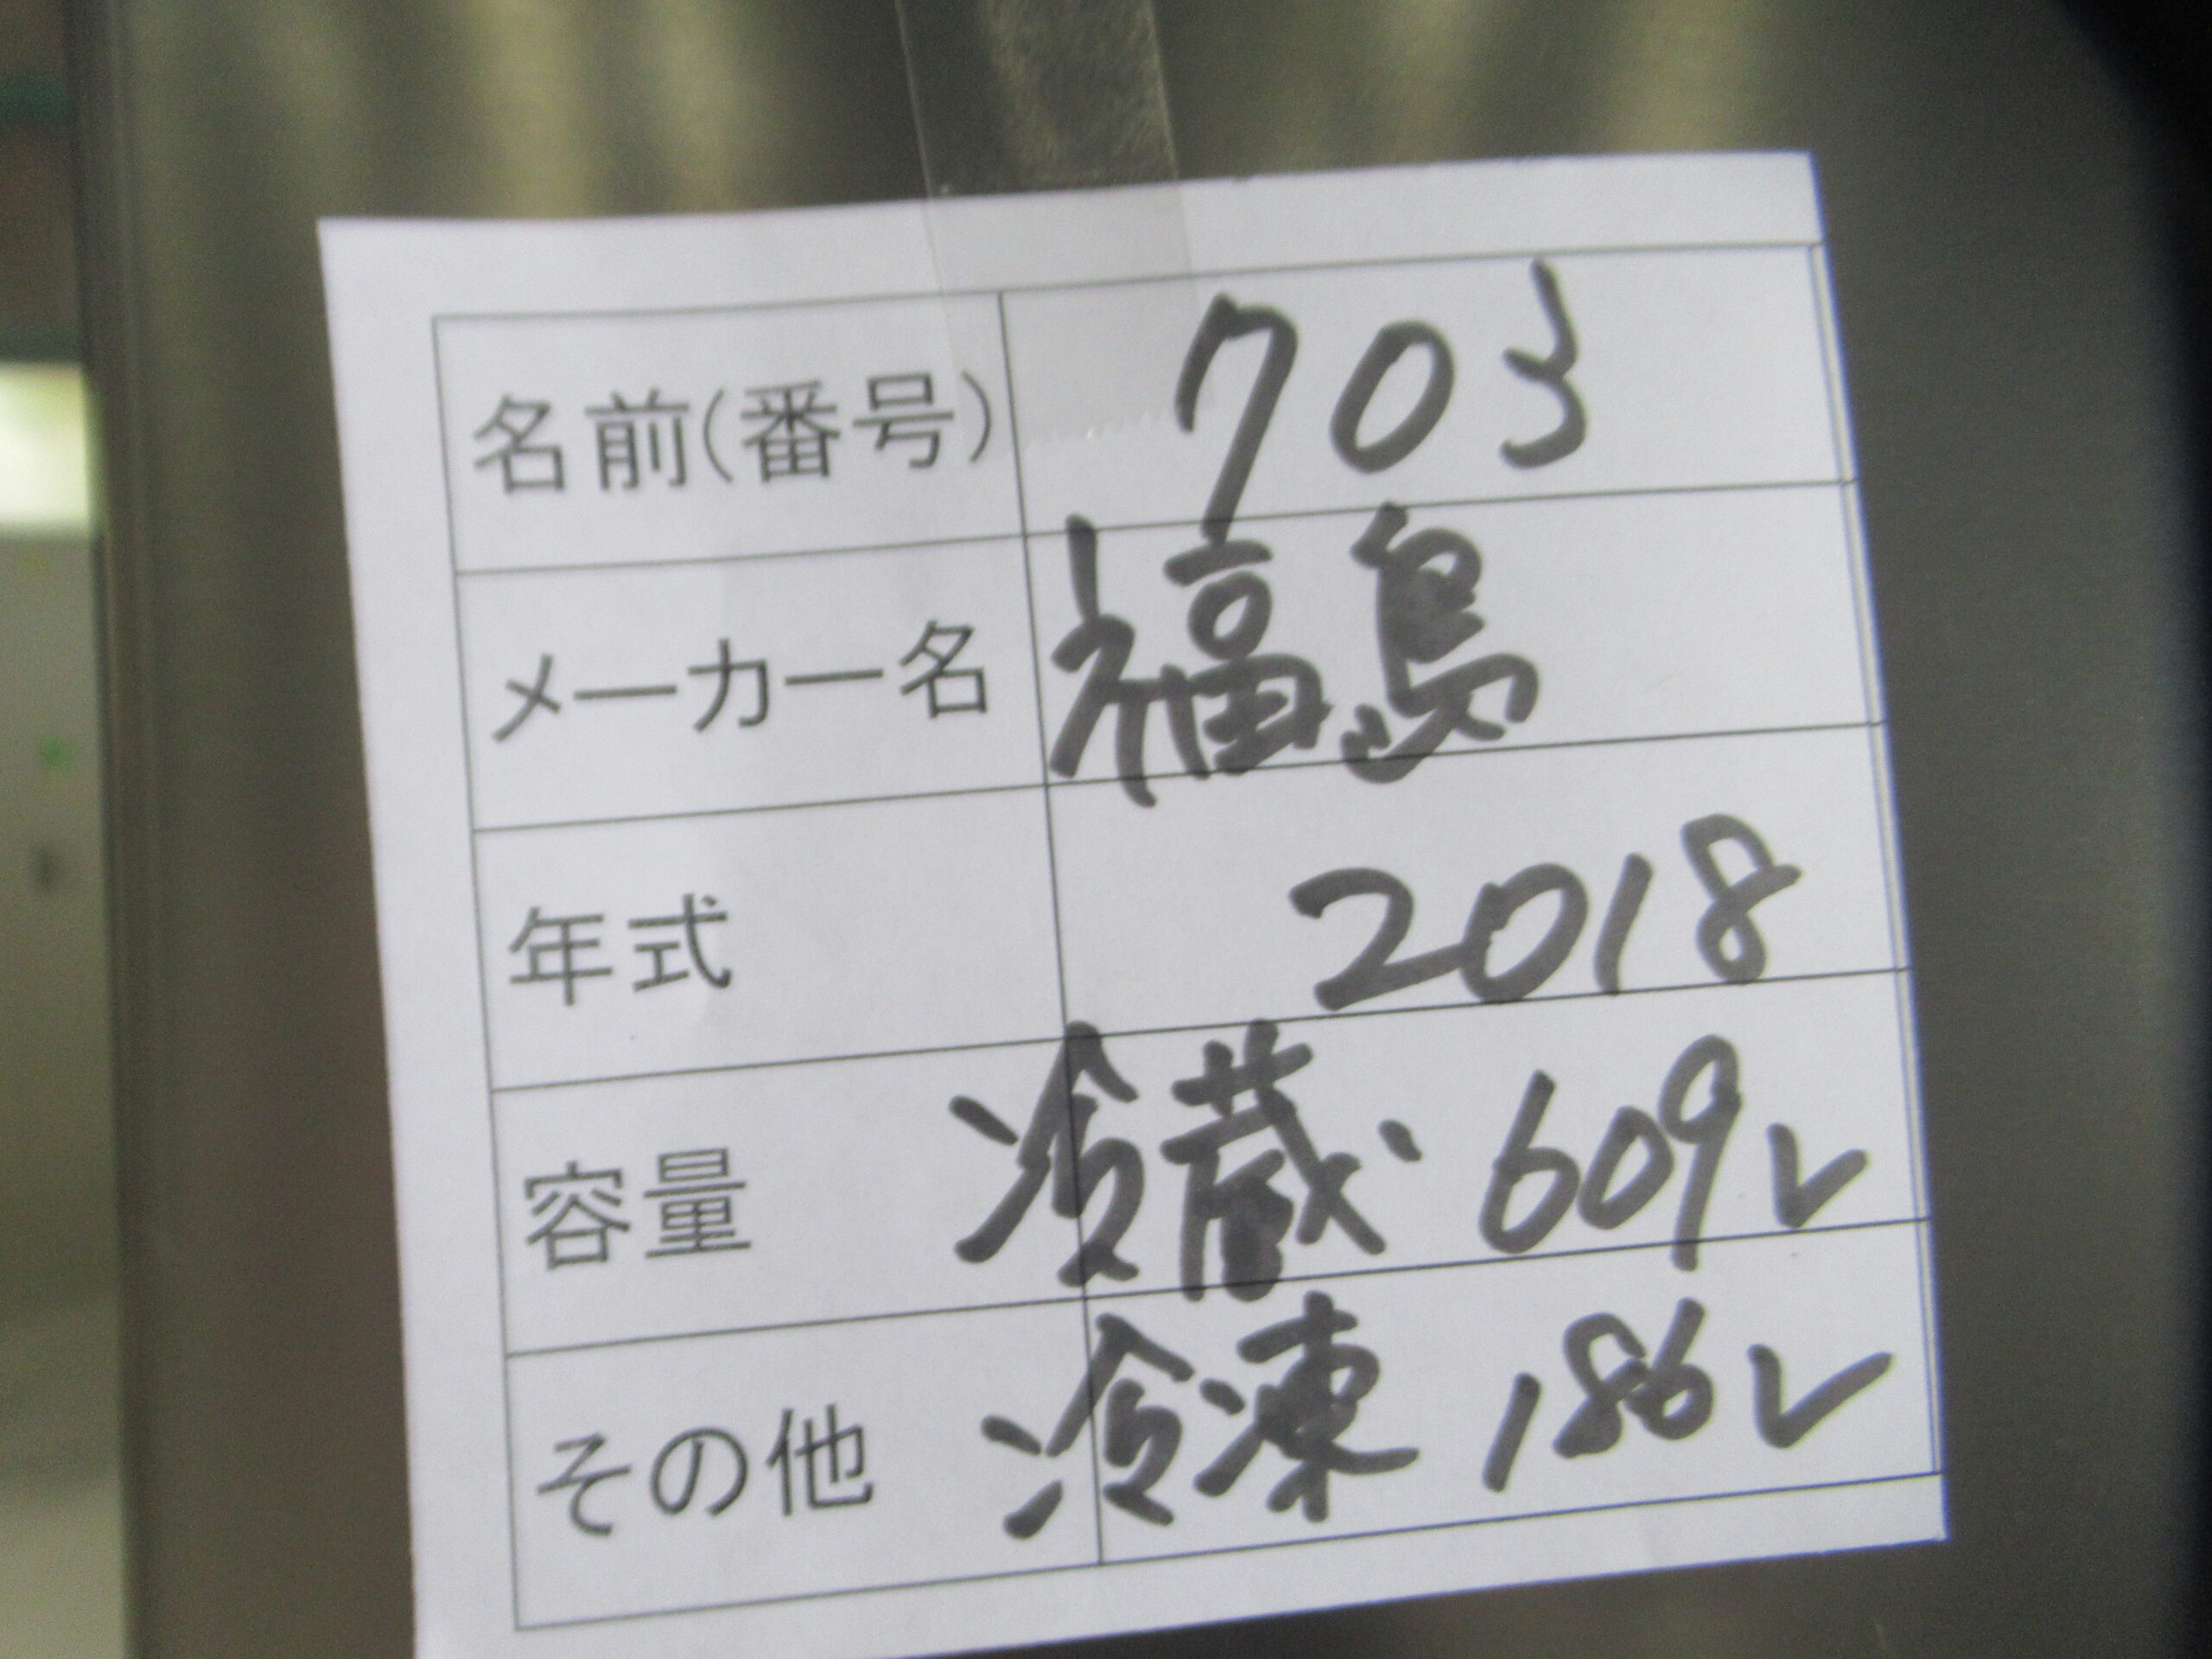 名前(番号) 703
メーカー名 福島
年式 2018
容量 冷蔵 609L
その他 冷凍 186L